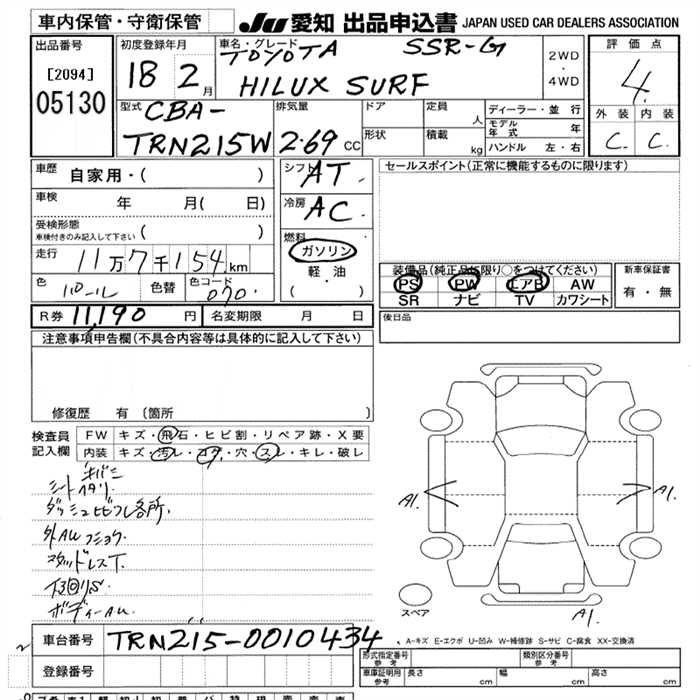 車内保管・守衛保管
JU 愛知 出品申込書 JAPAN USED CAR DEALERS ASSOCIATION
出品番号
[2094]
05130
初度登録年月
18 2月
車名・グレード
TOYOTA SSR-G
HILUX SURF
2WD
・
4WD
評価点
4.
外装 内装
C. C.
型式
CBA-
TRN215W
排気量
2.69 CC
ドア
形状
定員
人
積載
kg
ディーラー・並行
モデル年式 年
ハンドル 左・右
車歴
自家用・( )
車検
年 月( 日)
受検形態
車検付きのみ記入して下さい ( )
走行
11万7千154km
色
パール
色替
色コード
070.
シフト
AT.
冷房
AC.
燃料
ガソリン
軽・油
( ・ )
セールスポイント(正常に機能するものに限ります)
装備品(純正品に限り○をつけてください)
PS PW エアB AW
SR ナビ TV カワシート
新車保証書
有・無
R券 11,190 円
名変期限 月 日
後日品
注意事項申告欄(不具合内容等は具体的に記入して下さい)
修復歴 有〔箇所 〕
検査員
記入欄
FW キズ・飛石・ヒビ割・リペア跡・X要
内装 キズ・汚レ・コゲ・穴・スレ・キレ・破レ
ダッシュ 各所.
スタッドレスT.
A1.
A1.
スペア
A1.
A-キズ E-エクボ U-凹み W-補修跡 S-サビ C-腐食 XX-交換済
車台番号 TRN215-0010434
登録番号
形式指定番号
参考
類別区分番号
参考
車庫証明用
参考
長さ cm
幅 cm
高さ cm